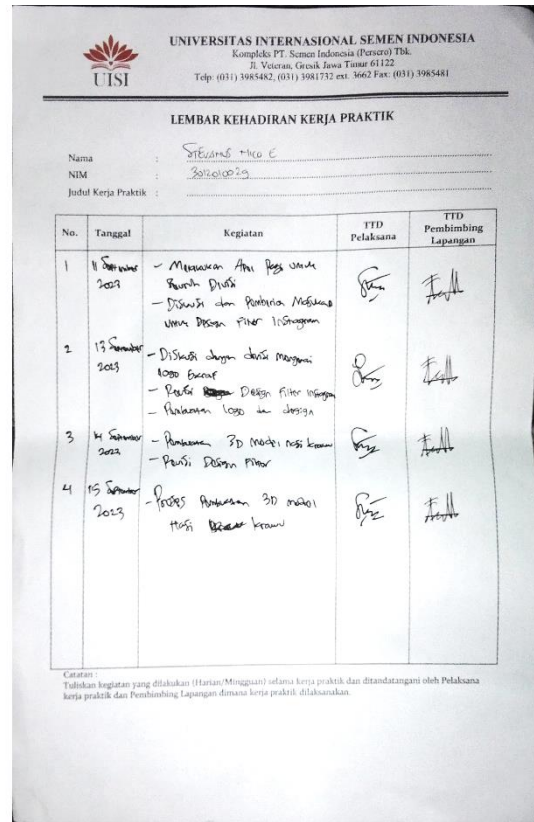 UISI
UNIVERSITAS INTERNASIONAL SEMEN INDONESIA
Kompleks PT. Semen Indonesia (Persero) Tbk.
Jl. Veteran, Gresik Jawa Timur 61122
Telp: (031) 3985482, (031) 3981732 ext. 3662 Fax: (031) 3985481
LEMBAR KEHADIRAN KERJA PRAKTIK
Nama :
NIM : 3012010029
Judul Kerja Praktik :
No. Tanggal Kegiatan TTD Pelaksana TTD Pembimbing Lapangan
1 11 September 2023
- Melakukan Apel Pagi untuk
Seluruh Divisi
- Diskusi dan Pemberian Masukan
untuk Design Filter Instagram
2 13 September 2023
- Diskusi dengan divisi mengenai
logo
- Revisi Design Filter Instagram
- Pembuatan logo dan design
3 14 September 2023
- Pembuatan 3D model nasi krawu
- Revisi Design Filter
4 15 September 2023
- Proses Pembuatan 3D model
Nasi krawu
Catatan :
Tuliskan kegiatan yang dilakukan (Harian/Mingguan) selama kerja praktik dan ditandatangani oleh Pelaksana
kerja praktik dan Pembimbing Lapangan dimana kerja praktik dilaksanakan.